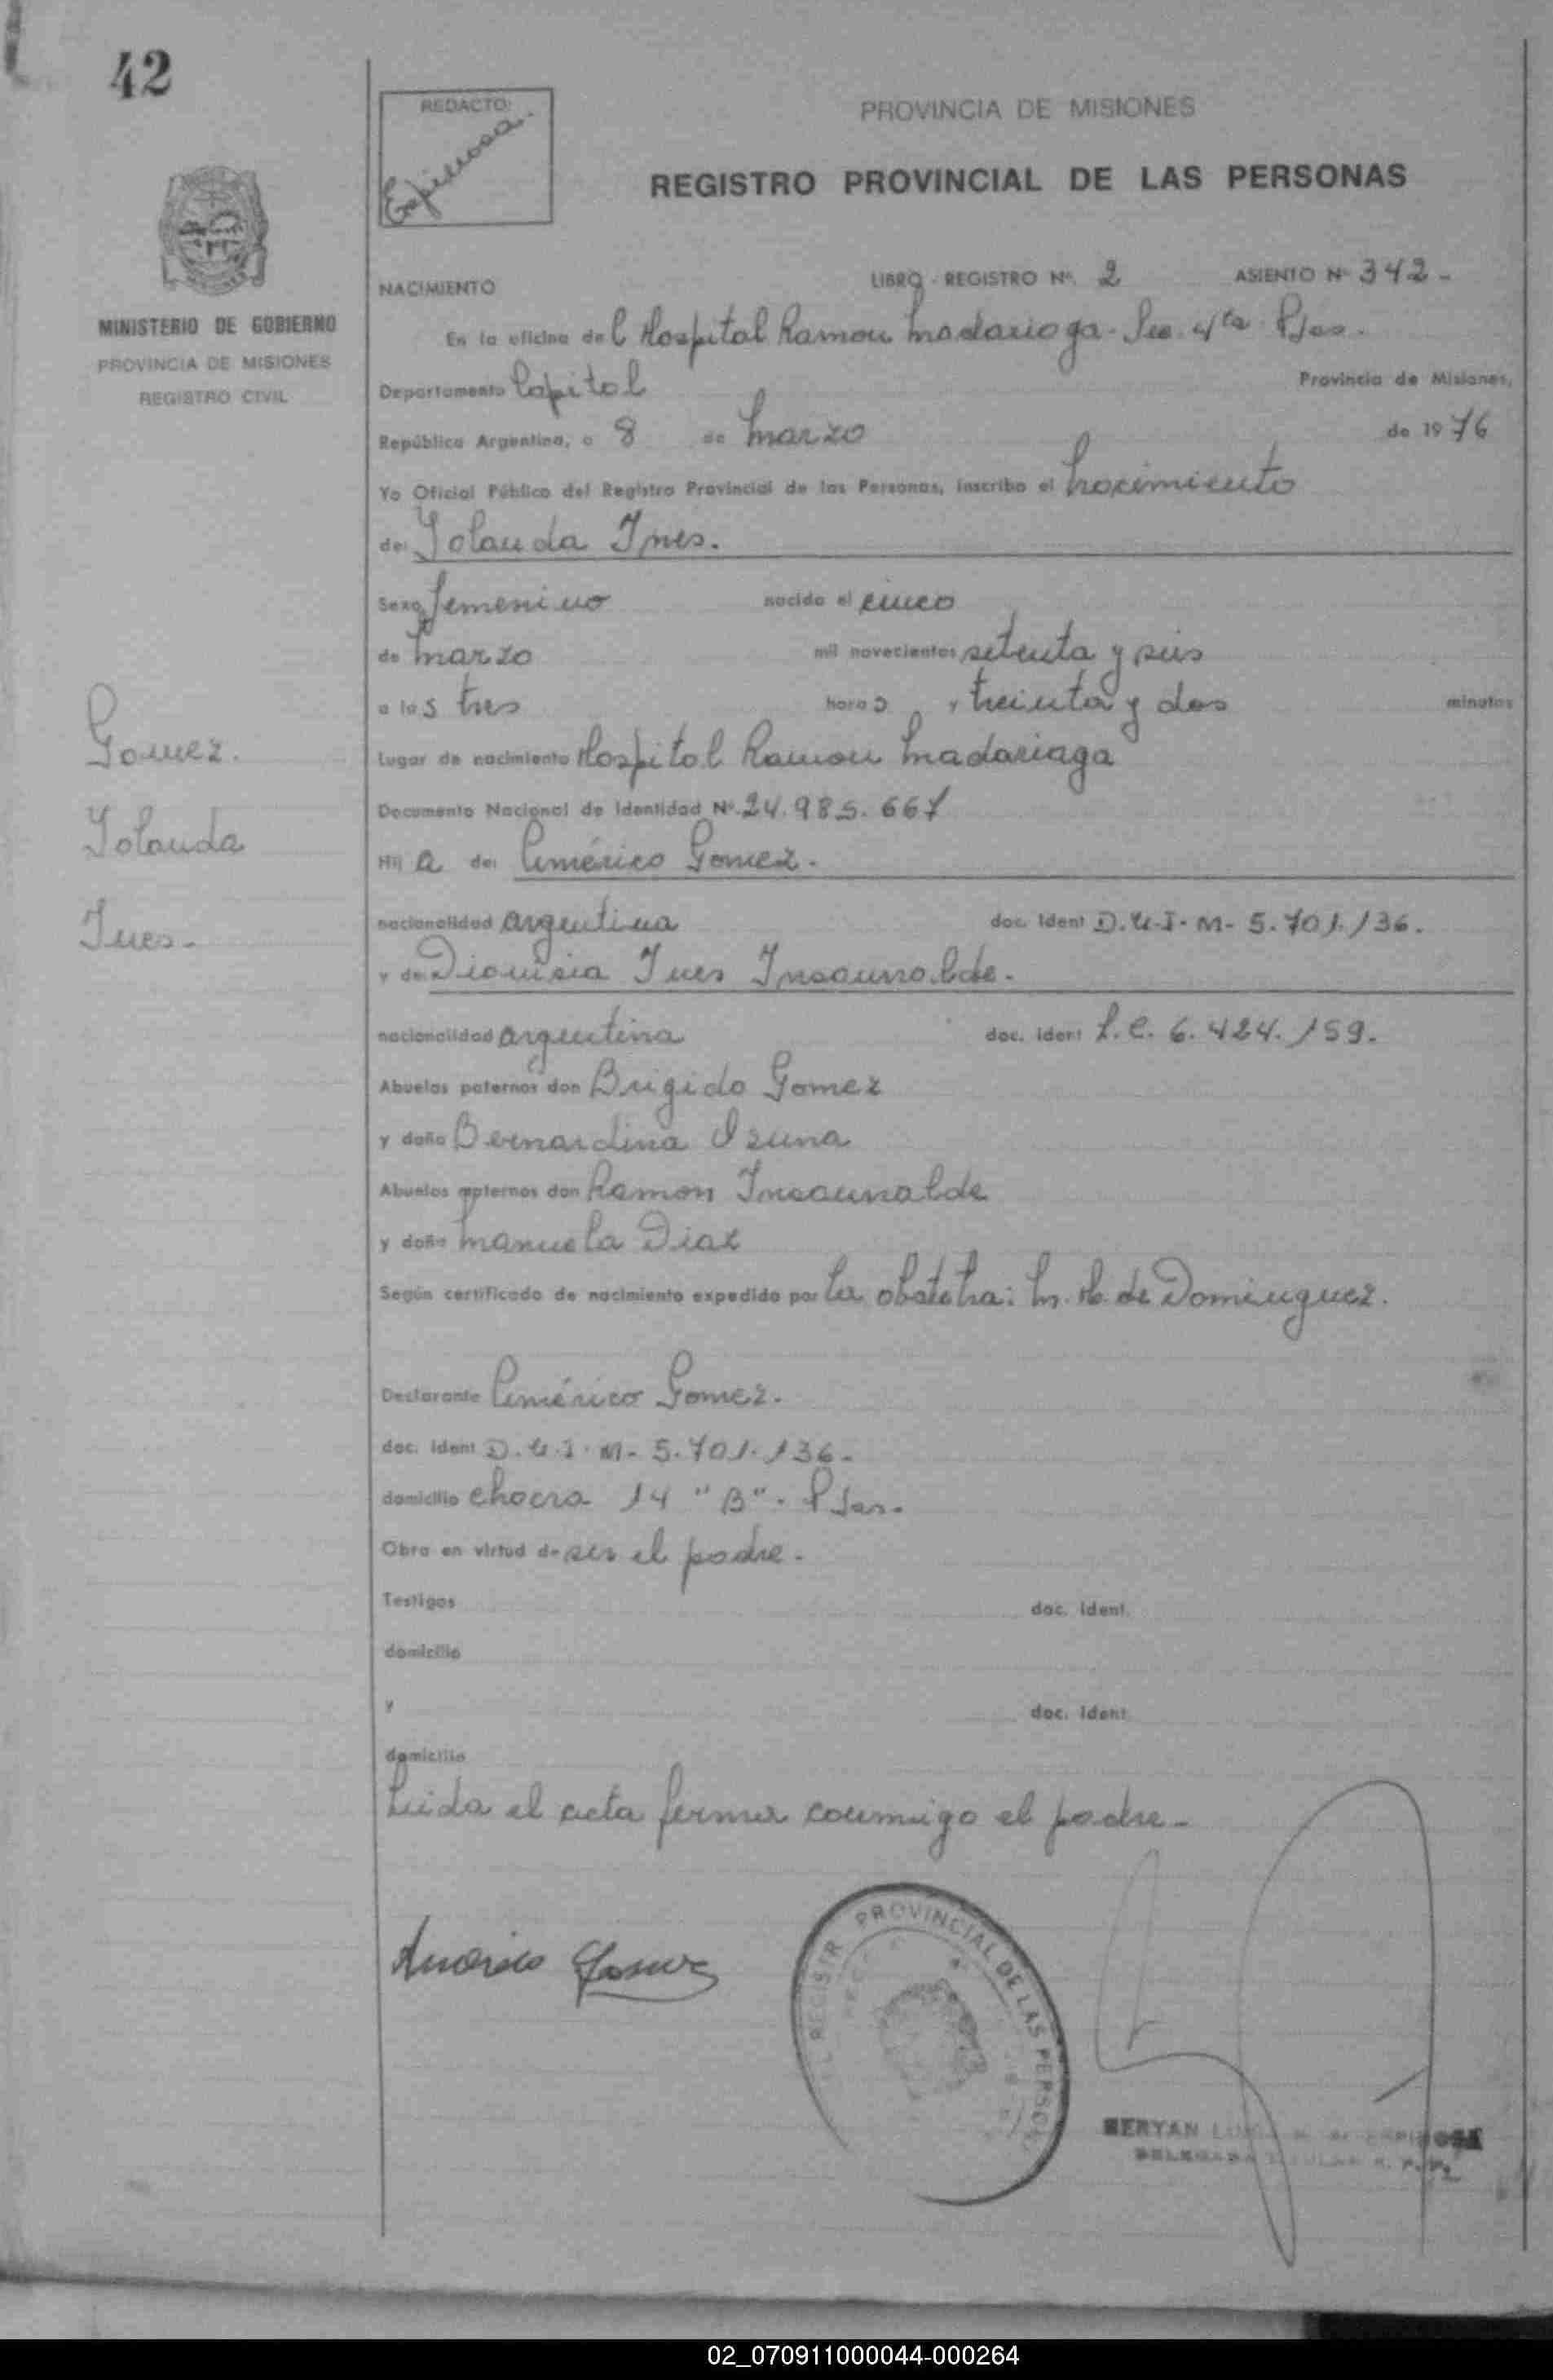 42
REDACTO:
Espinosa.
PROVINCIA DE MISIONES
REGISTRO PROVINCIAL DE LAS PERSONAS
MINISTERIO DE GOBIERNO
PROVINCIA DE MISIONES
REGISTRO CIVIL
NACIMIENTO LIBRO - REGISTRO Nº. 2 ASIENTO Nº 342-
En la oficina del Hospital Ramon Madariaga - Sec. 4ta Pdas.
Departamento Capital Provincia de Misiones,
República Argentina, a 8 de Marzo de 1976
Yo Oficial Público del Registro Provincial de las Personas, inscribo el Nacimiento
de: Yolanda Ines.
Sexo femenino nacida el cinco
de Marzo mil novecientos setenta y seis
a las tres horas y treinta y dos minutos
Lugar de nacimiento Hospital Ramon Madariaga
Documento Nacional de Identidad Nº. 24.985.667
Hija de: Américo Gomez.
nacionalidad argentina doc. ident D.U.I. M- 5.701.136.
y de Dionisia Ines Insaurralde.
nacionalidad argentina doc. ident L.C. 6.424.159.
Abuelos paternos don Brigido Gomez
y doña Bernardina Osuna
Abuelos maternos don Ramon Insaurralde
y doña Manuela Diaz
Según certificado de nacimiento expedido por la obstetra: M. H. de Dominguez.
Declarante Américo Gomez.
doc. ident D.U.I. M- 5.701.136-
domicilio chacra 14 "B". Pdas.
Obra en virtud de ser el padre.
Testigos doc. ident.
domicilio
y doc. ident
domicilio
Leida el acta firma conmigo el padre-
Gomez.
Yolanda
Ines-
Americo Gomez
PROVINCIAL DE LAS PERSO
02_070911000044-000264